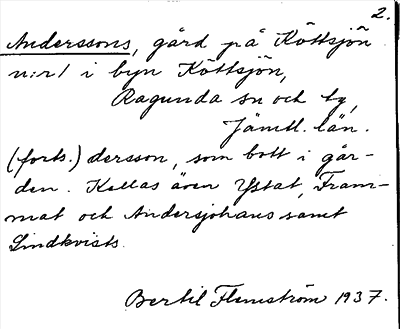 2.
Anderssons, gård på Köttsjön
n:r 1 i byn Köttsjön,
Ragunda sn och tg,
Jämtl. län.
(forts.) dersson, som bott i går-
den. Kallas även Ystat, Fram-
mat och Andersjohans samt
Lindkvists.
Bertil Flemström 1937.